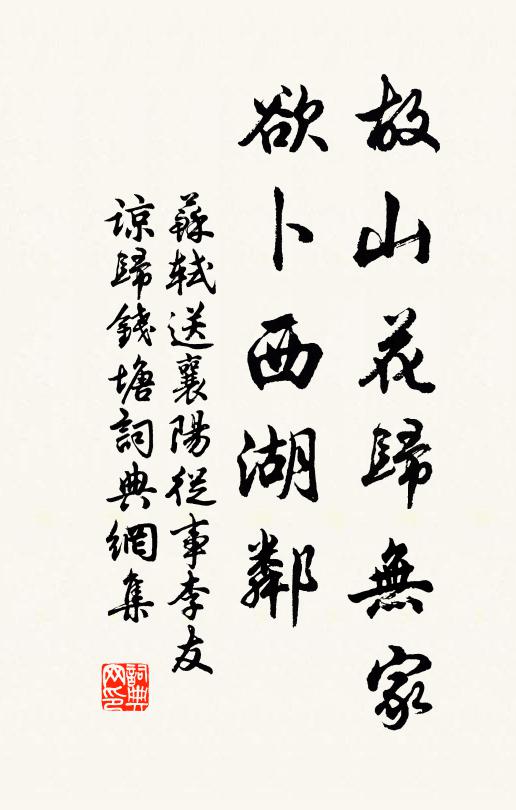 故山花歸無家
欲卜西湖鄰
蘇軾送襄陽從事李友
諒歸錢塘詞典網集
詞典
网印